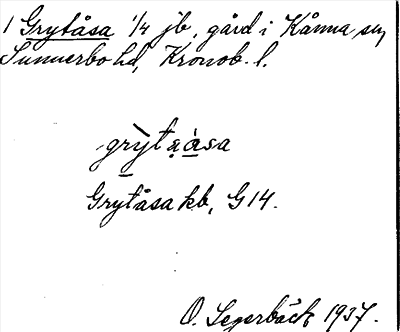 1 Grytåsa 1/4 jb, gård i Kånna sn,
Sunnerbo hd, Kronob. l.
grỳtạàsa
Grytåsa kb, G 14.
O. Segerbäck 1937.